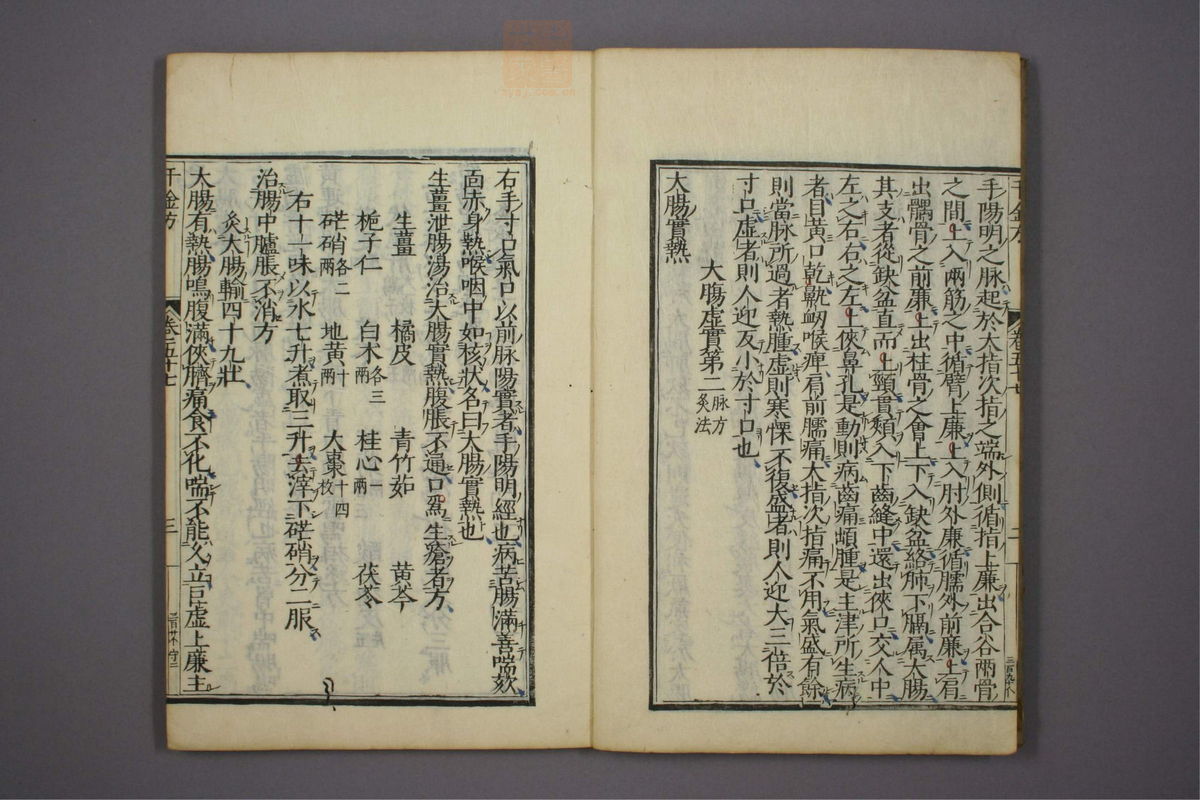 手陽明之脉起於大指次指之端外側循指上廉出合谷兩骨
之間上入兩筋之中循臂上廉上入肘外廉循臑外前廉上肩
出髃骨之前廉上出柱骨之會上下入缺盆絡肺下膈属大腸
其支者從缺盆直而上頸貫頰入下齒縫中還出俠口交人中
左之右右之左上俠鼻孔是動則病齒痛䪼腫是主津所生病
者目黃口乾鼽衂喉痺肩前臑痛大指次指痛不用氣盛有餘
則當脉所過者熱腫虛則寒慄不復盛者則人迎大三倍於
寸口虛者則人迎反小於寸口也
大膓虛實第二 脉 方 灸法
大腸實熱
右手寸口氣口以前脉陽實者手陽明經也病苦腸滿善喘欬
面赤身熱喉咽中如核狀名曰大腸實熱也
生薑泄腸湯治大腸實熱腹脹不通口為生瘡者方
生薑 橘皮 青竹茹 黄芩
梔子仁 白朮各三兩 桂心一兩 茯苓
芒硝各二兩 地黄十兩 大棗十四枚
右十一味以水七升煮取三升去滓下芒硝分二服
治腸中臚脹不消方
灸大腸輸四十九壯
大腸有熱腸鳴腹滿俠臍痛食不化喘不能久立巨虚上廉主
千金方
卷五十七
三
千金方
卷五十七
二